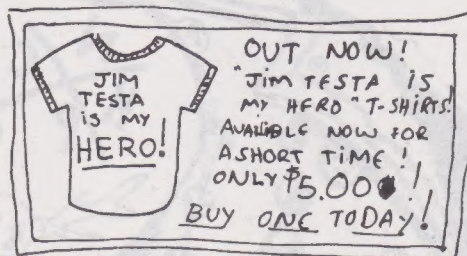 JIM
TESTA
iS MY
HERO!
OUT NOW!
"JIM TESTA IS
MY HERO" T-SHIRTS!
AVAILIBLE NOW FOR
ASHORT TIME!
ONLY $5.00!
BUY ONE TODAY!